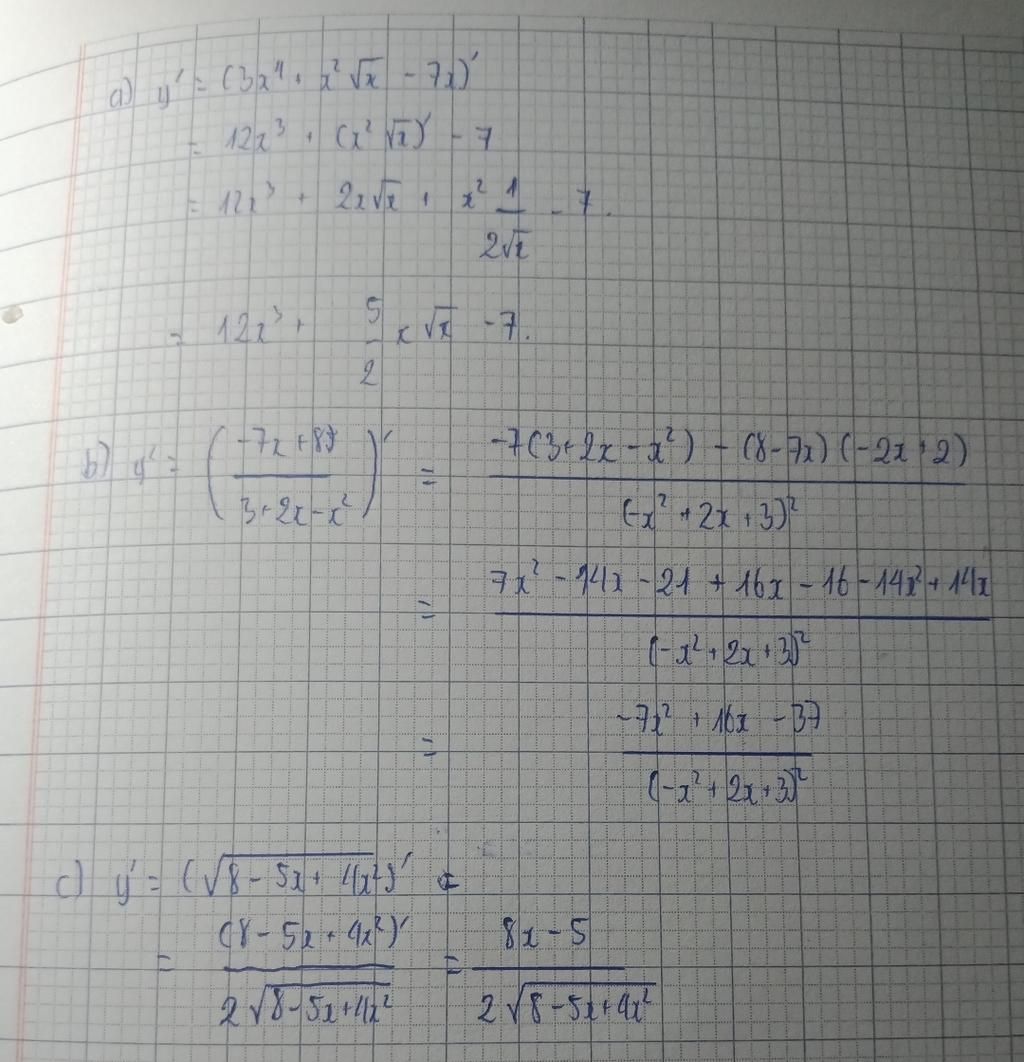 a) y' = (3x⁴ + x²√x - 7x)'
= 12x³ + (x²√x)' - 7
= 12x³ + 2x√x + x² 1/(2√x) - 7.
= 12x³ + 5/2 x√x - 7.
b) y' = ((-7x+8)/(3+2x-x²))' = (-7(3+2x-x²) - (8-7x)(-2x+2))/(-x²+2x+3)²
= (7x² - 14x - 21 + 16x - 16 - 14x² + 14x)/(-x²+2x+3)²
= (-7x² + 16x - 37)/(-x²+2x+3)²
c) y' = (√(8-5x+4x²))' =
= (8-5x+4x²)'/(2√(8-5x+4x²)) = (8x-5)/(2√(8-5x+4x²))